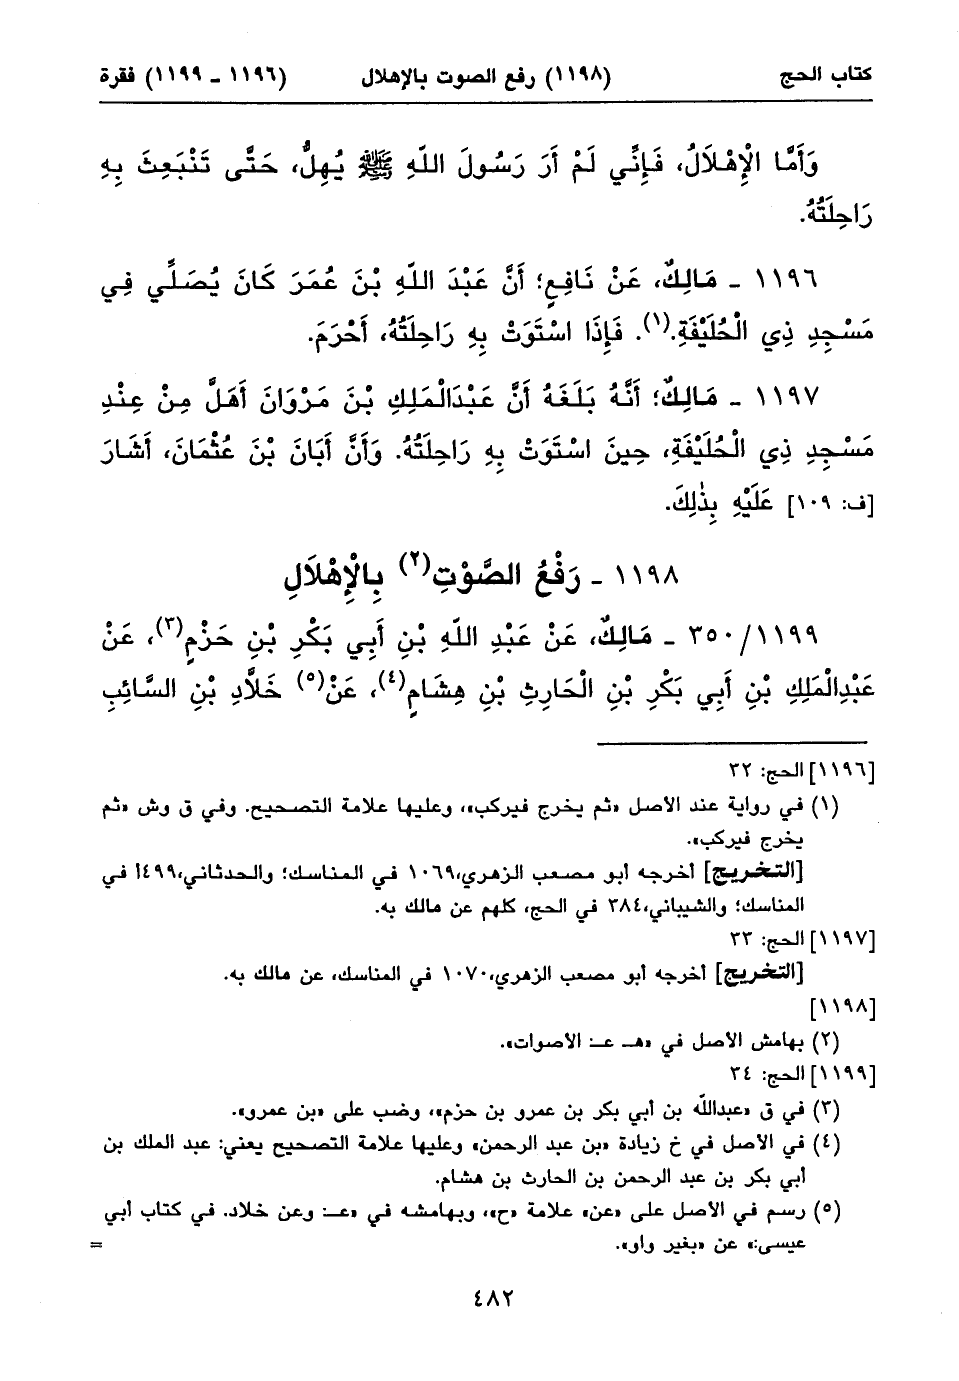 كتاب الحج (١١٩٨) رفع الصوت بالإهلال (١١٩٦ - ١١٩٩) فقرة
وَأَمَّا الْإِهْلَالُ، فَإِنِّي لَمْ أَرَ رَسُولَ اللّهِ ﷺ يُهِلُّ، حَتَّى تَنْبَعِثَ بِهِ
رَاحِلَتُهُ.
١١٩٦ - مَالِكٌ، عَنْ نَافِعٍ؛ أَنَّ عَبْدَ اللّهِ بْنَ عُمَرَ كَانَ يُصَلِّي فِي
مَسْجِدِ ذِي الْحُلَيْفَةِ.(١). فَإِذَا اسْتَوَتْ بِهِ رَاحِلَتُهُ، أَحْرَمَ.
١١٩٧ - مَالِكٌ؛ أَنَّهُ بَلَغَهُ أَنَّ عَبْدَالْمَلِكِ بْنَ مَرْوَانَ أَهَلَّ مِنْ عِنْدِ
مَسْجِدِ ذِي الْحُلَيْفَةِ، حِينَ اسْتَوَتْ بِهِ رَاحِلَتُهُ. وَأَنَّ أَبَانَ بْنَ عُثْمَانَ، أَشَارَ
[ف: ١٠٩] عَلَيْهِ بِذٰلِكَ.
١١٩٨ - رَفْعُ الصَّوْتِ(٢) بِالْإِهْلَالِ
٣٥٠/١١٩٩ - مَالِكٌ، عَنْ عَبْدِ اللّهِ بْنِ أَبِي بَكْرِ بْنِ حَزْمٍ(٣)، عَنْ
عَبْدِالْمَلِكِ بْنِ أَبِي بَكْرِ بْنِ الْحَارِثِ بْنِ هِشَامٍ(٤)، عَنْ(٥) خَلَّادِ بْنِ السَّائِبِ
[١١٩٦] الحج: ٣٢
(١) في رواية عند الأصل «ثم يخرج فيركب»، وعليها علامة التصحيح. وفي ق وش «ثم
يخرج فيركب».
[التخريج] أخرجه أبو مصعب الزهري،١٠٦٩ في المناسك؛ والحدثاني،٤٩٩أ في
المناسك؛ والشيباني،٣٨٤ في الحج، كلهم عن مالك به.
[١١٩٧] الحج: ٣٣
[التخريج] أخرجه أبو مصعب الزهري،١٠٧٠ في المناسك، عن مالك به.
[١١٩٨]
(٢) بهامش الأصل في «هـ عـ: الأصوات».
[١١٩٩] الحج: ٣٤
(٣) في ق «عبدالله بن أبي بكر بن عمرو بن حزم»، وضب على «بن عمرو».
(٤) في الأصل في خ زيادة «بن عبد الرحمن» وعليها علامة التصحيح يعني: عبد الملك بن
أبي بكر بن عبد الرحمن بن الحارث بن هشام.
(٥) رسم في الأصل على «عن» علامة «ح»، وبهامشه في «عـ: وعن خلاد. في كتاب أبي
عيسى:» عن «بغير واو».
=
٤٨٢